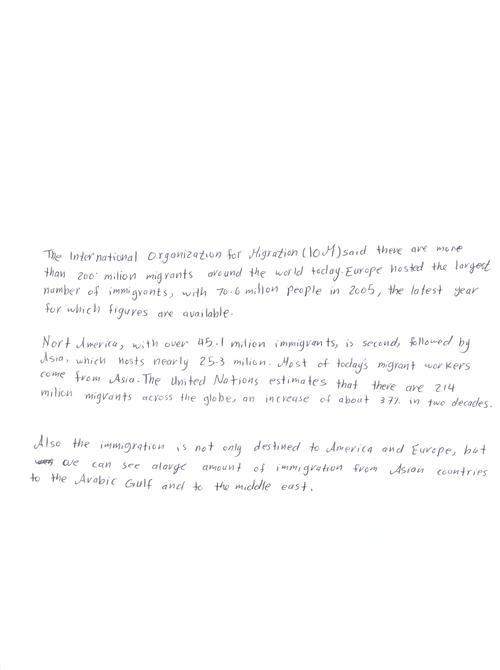 The International Organization for Migration (IOM) said there are more
than 200 milion migrants around the world today. Europe hosted the largest
number of immigrants, with 70.6 millon people in 2005, the latest year
for which figures are available.
Nort America, with over 45.1 milion immigrants, is second, followed by
Asia, which hosts nearly 25.3 milion. Most of today's migrant workers
come from Asia. The United Nations estimates that there are 214
milion migrants across the globe, an increase of about 37% in two decades.
Also the immigration is not only destined to America and Europe, but
we can see alarge amount of immigration from Asian countries
to the Arabic Gulf and to the middle east.